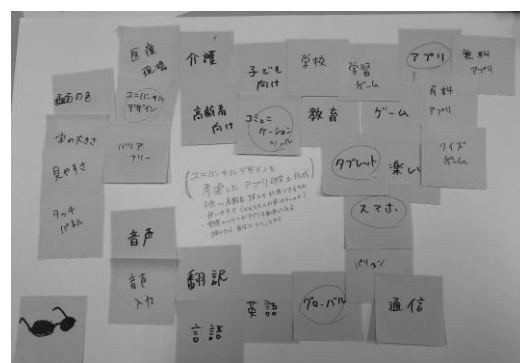 医療
現場
介護
子ども
向け
学校
学習
ゲーム
アプリ
無料
アプリ
画面の色
ユニバーサル
デザイン
高齢者
向け
コミュニ
ケーション
ツール
教育
ゲーム
有料
アプリ
字の大きさ
見やすさ
バリア
フリー
タブレット
楽しい
クイズ
ゲーム
タッチ
パネル
ユニバーサルデザインを
考慮したアプリ研究&作成
スマホ
音声
音声
入力
翻訳
パソコン
言語
英語
グローバル
通信